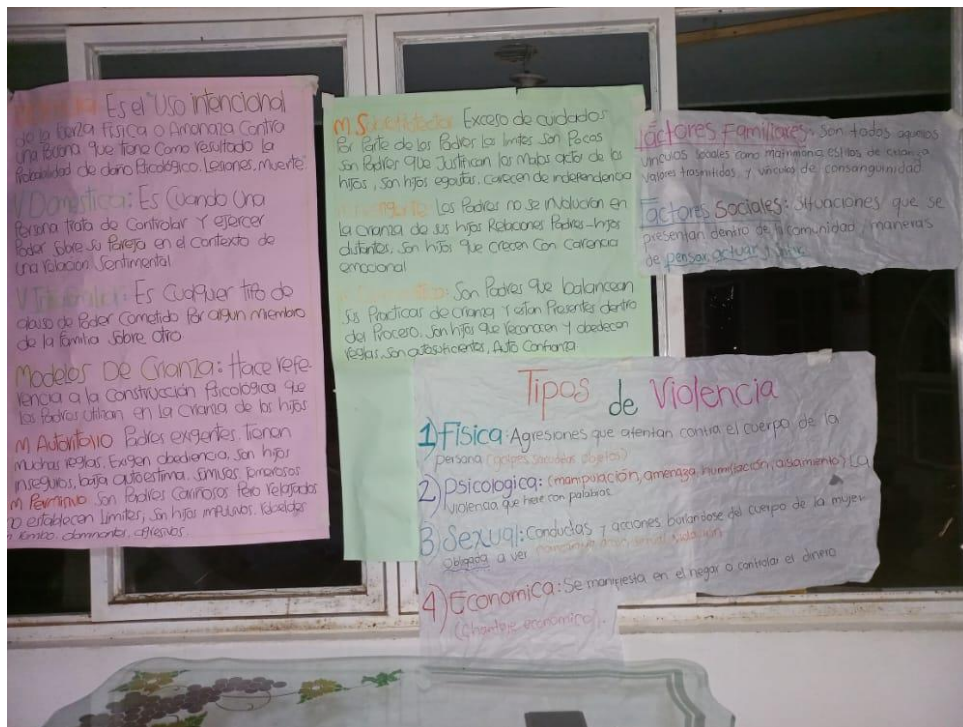 Es el "Uso intencional
de la Fuerza Física o Amenaza Contra
una Persona que tiene como resultado la
Probabilidad de daño Psicológico, Lesiones, muerte.
V Domestica: Es Cuando Una
Persona trata de Controlar Y ejercer
Poder Sobre su Pareja en el Contexto de
una relacion Sentimental
V Es Cualquier tipo de
abuso de Poder Cometido Por algun miembro
de la familia Sobre otro.
Modelos De Crianza: Hace refe-
rencia a la Construcción Psicológica que
los Padres utilizan en La crianza de los hijos
M Autoritario Padres exigentes, tienen
muchas reglas, Exigen obediencia, Son hijos
inseguros, baja autoestima, Sumisos, temerosos
m Permisivo Son Padres Cariñosos Pero relajados
no establecen Limites, Son hijos impulsivos, Rebeldes
dominantes, agresivos.
M Exceso de cuidados
Por Parte de los Padres los limites Son Pocos
Son Padres que Justifican los malos actos de los
hijos, Son hijos egoistas, carecen de independencia
Los Padres no se involucran en
La crianza de sus hijos Relaciones Padres-hijos
distantes, son hijos que crecen Con carencia
emocional
Son Padres que balancean
Sus Practicas de crianza Y estan Presentes dentro
del Proceso, Son hijos que reconocen Y obedecen
reglas, Son autosuficientes, Auto Confianza
factores Familiares: Son todos aquellos
vinculos sociales como matrimonio estilos de crianza
valores trasmitidos, y vinculo de consanguinidad
Factores Sociales: Situaciones que se
presentan dentro de la comunidad, maneras
de pensar, actuar y
Tipos de Violencia
1) Física: Agresiones que atentan contra el cuerpo de la
persona (golpes, objetos)
2) Psicologica: (manipulación, amenaza, humillación, aislamiento) La
violencia que hiere con palabras.
3) Sexual: Conductas y acciones burlandose del cuerpo de la mujer
obligada a ver
4) Economica: Se manifiesta en el negar o controlar el dinero
(Chantaje económico).